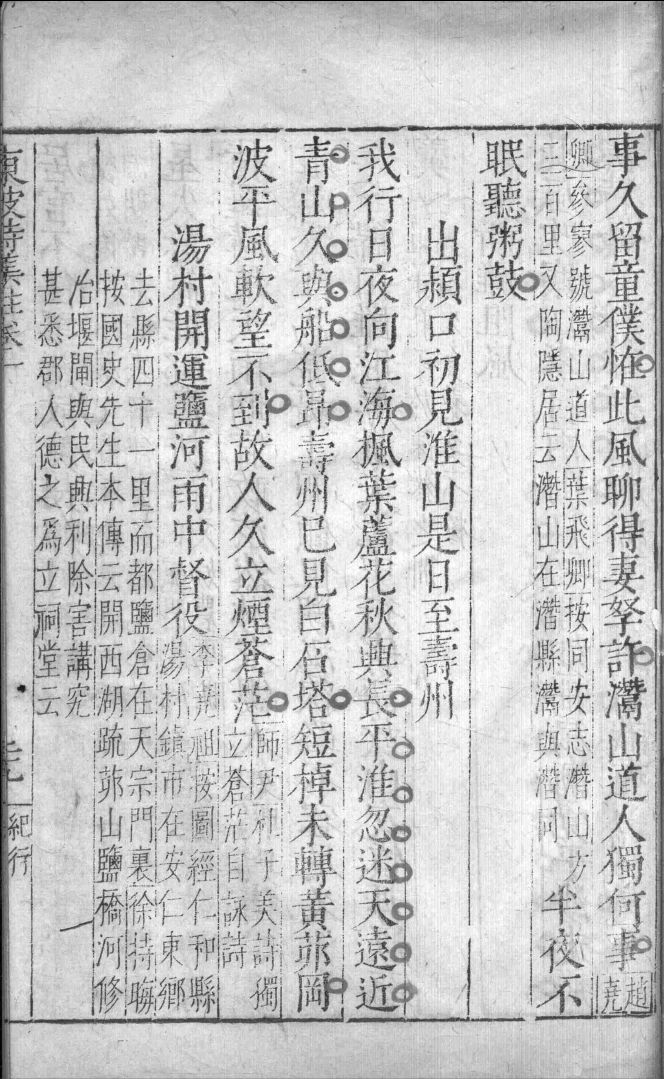 事久留童僕怪此風聊得妻孥許灊山道人獨何事趙堯
卿參寥號灊山道人葉飛卿按同安志潛山方
三百里又陶隱居云潛山在潛縣灊與潛同
半夜不
眠聽粥鼓
出潁口初見淮山是日至壽州
我行日夜向江海楓葉蘆花秋興長平淮忽迷天遠近
青山久與船低昂壽州已見白石塔短棹未轉黃茆岡
波平風軟望不到故人久立煙蒼茫
師尹杜子美詩獨
立蒼茫自詠詩
湯村開運鹽河雨中督役
李堯祖按圖經仁和縣
湯村鎮市在安仁東鄉
去縣四十一里而都鹽倉在天宗門裏徐持晦
按國史先生本傳云開西湖疏茆山鹽橋河修
治堰閘與民興利除害講究
甚悉郡人德之為立祠堂云
東坡詩集註卷一
紀行